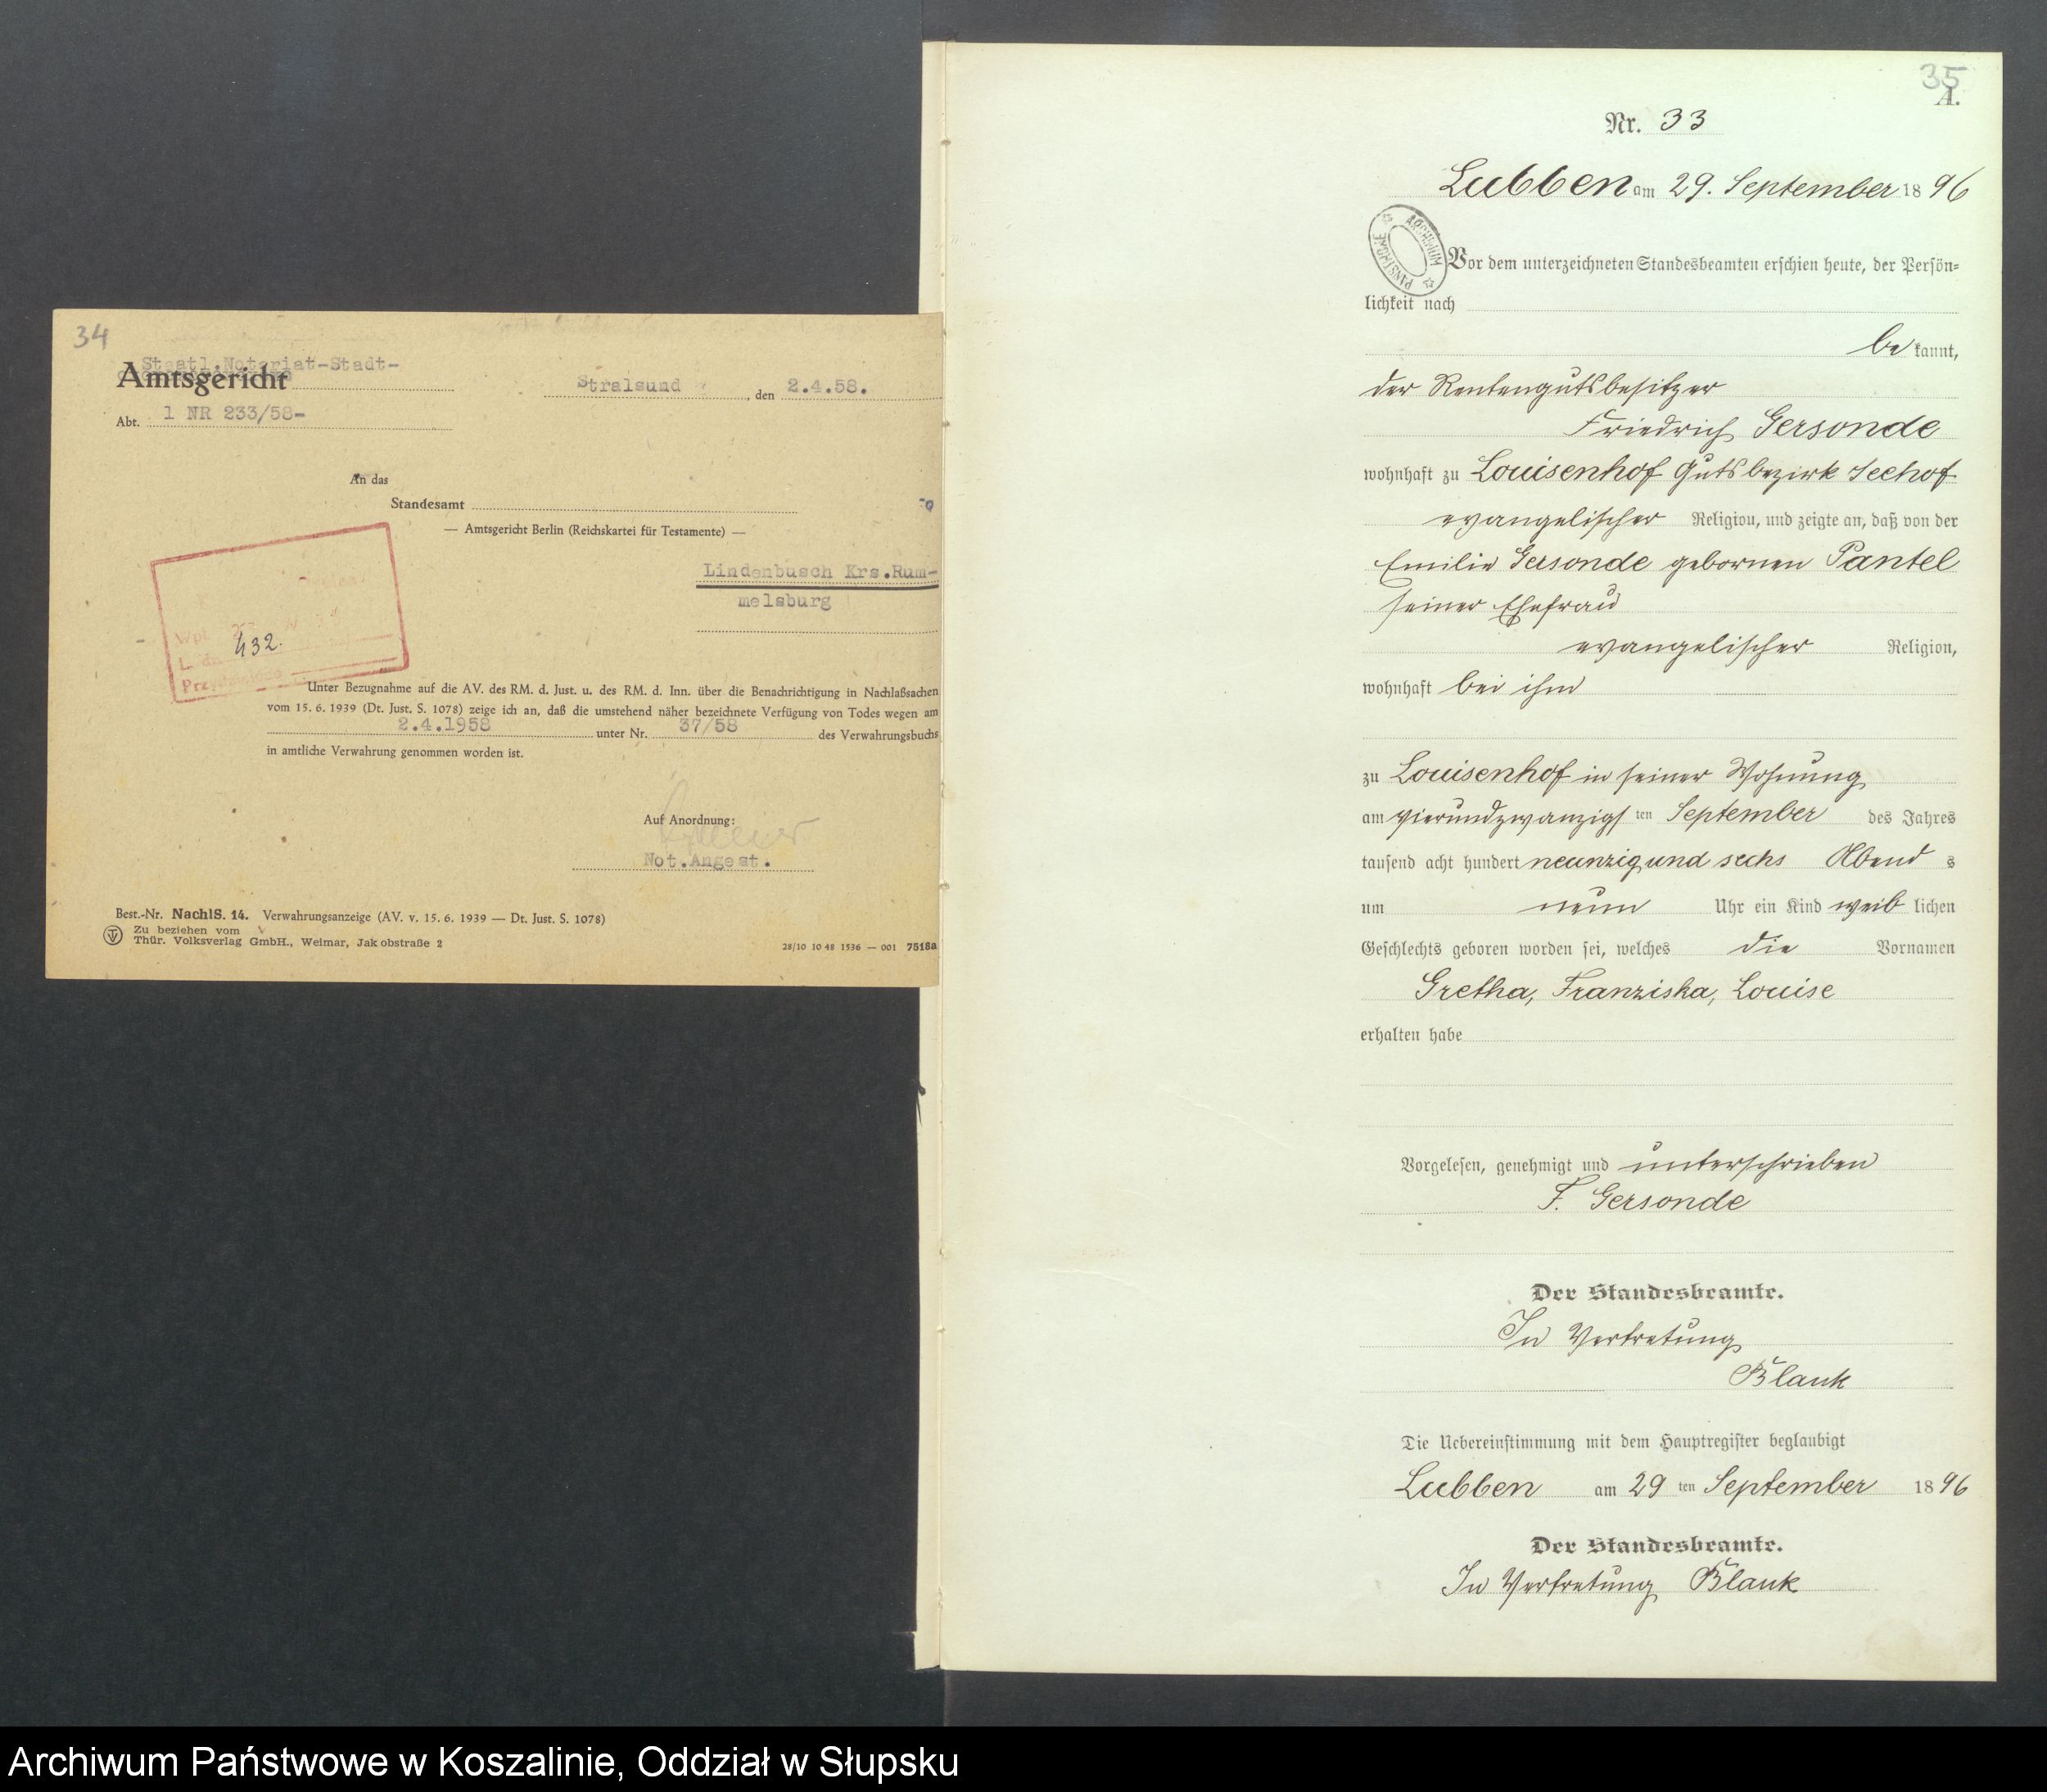 34
Staatl.Notariat-Stadt-
Amtsgericht
Stralsund, den 2.4.58.
Abt. 1 NR 233/58-
An das
Standesamt
— Amtsgericht Berlin (Reichskartei für Testamente) —
Lindenbusch Krs.Rum-
melsburg
432.
Unter Bezugnahme auf die AV. des RM. d. Just. u. des RM. d. Inn. über die Benachrichtigung in Nachlaßsachen
vom 15. 6. 1939 (Dt. Just. S. 1078) zeige ich an, daß die umstehend näher bezeichnete Verfügung von Todes wegen am
2.4.1958 unter Nr. 37/58 des Verwahrungsbuchs
in amtliche Verwahrung genommen worden ist.
Auf Anordnung:
Not.Angest.
Best.-Nr. NachlS. 14. Verwahrungsanzeige (AV. v. 15. 6. 1939 — Dt. Just. S. 1078)
Zu beziehen vom
Thür. Volksverlag GmbH., Weimar, Jakobstraße 2
28/10 10 48 1536 — 001 7518a
35
A.
Nr. 33
Lubben am 29. September 1896
ARCHIWUM PAŃSTWOWE
Vor dem unterzeichneten Standesbeamten erschien heute, der Persön-
lichkeit nach
be kannt,
der Rentengutsbesitzer
Friedrich Gersonde
wohnhaft zu Louisenhof Gutsbezirk Seehof
evangelischer Religion, und zeigte an, daß von der
Emilie Gersonde gebornen Pantel
seiner Ehefrau
evangelischer Religion,
wohnhaft bei ihm
zu Louisenhof in seiner Wohnung
am vierundzwanzigs ten September des Jahres
tausend acht hundert neunzig und sechs Abend s
um neun Uhr ein Kind weib lichen
Geschlechts geboren worden sei, welches die Vornamen
Gretha, Franziska, Louise
erhalten habe
Vorgelesen, genehmigt und unterschrieben
F. Gersonde
Der Standesbeamte.
In Vertretung
Blank
Die Uebereinstimmung mit dem Hauptregister beglaubigt
Lubben am 29 ten September 1896
Der Standesbeamte.
In Vertretung Blank
Archiwum Państwowe w Koszalinie, Oddział w Słupsku